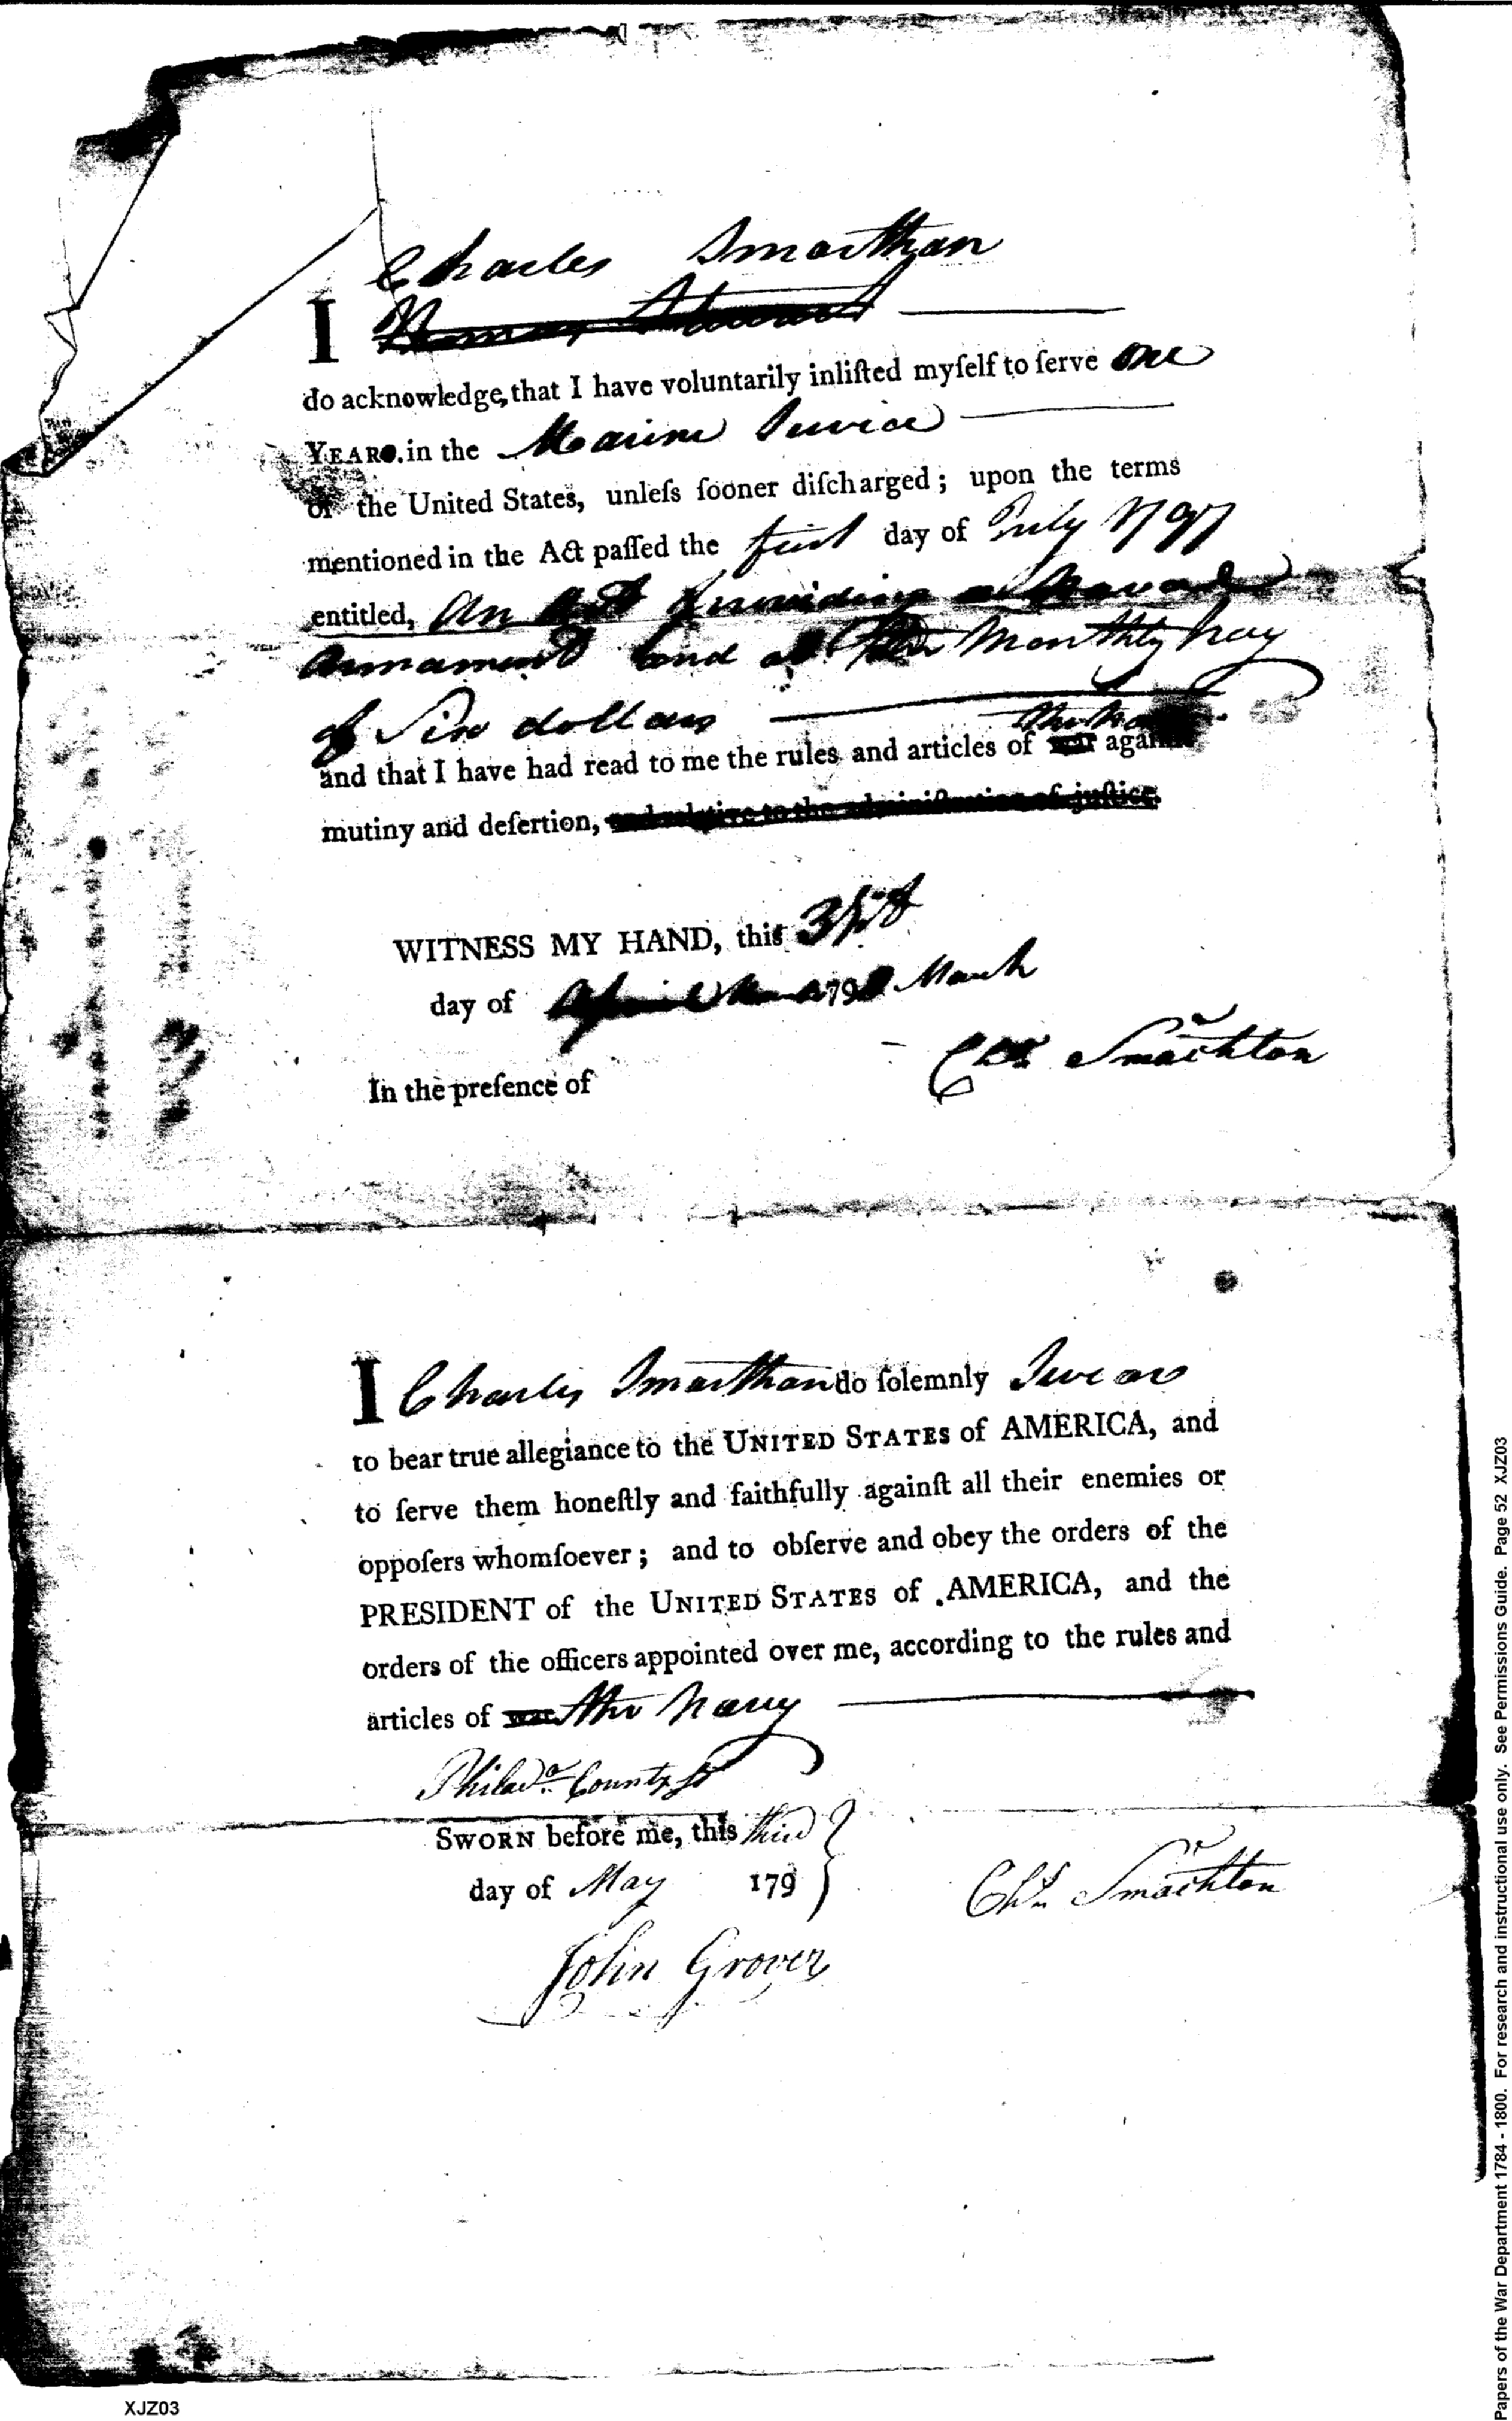 Charles Smarthan
I
do acknowledge, that I have voluntarily inliſted myſelf to ſerve one
YEARS. in the Marine Service
of the United States, unleſs ſooner diſcharged; upon the terms
mentioned in the Act paſſed the first day of July 1797
entitled, An Act providing a Naval
armament and at the Monthly pay
of Six dollars
the Navy
and that I have had read to me the rules and articles of war againſt
mutiny and deſertion, and relative to the adminiſtration of juſtice.
WITNESS MY HAND, this 31st
day of April 179 March
Chs Smachton
In the preſence of
I Charles Smarthan do ſolemnly Swear
to bear true allegiance to the UNITED STATES of AMERICA, and
to ſerve them honeſtly and faithfully againſt all their enemies or
oppoſers whomſoever; and to obſerve and obey the orders of the
PRESIDENT of the UNITED STATES of AMERICA, and the
orders of the officers appointed over me, according to the rules and
articles of war the Navy
Philada. County ss
SWORN before me, this third
day of May 179
Chs Smachton
John Grover
XJZ03
Papers of the War Department 1784 - 1800. For research and instructional use only. See Permissions Guide. Page 52 XJZ03